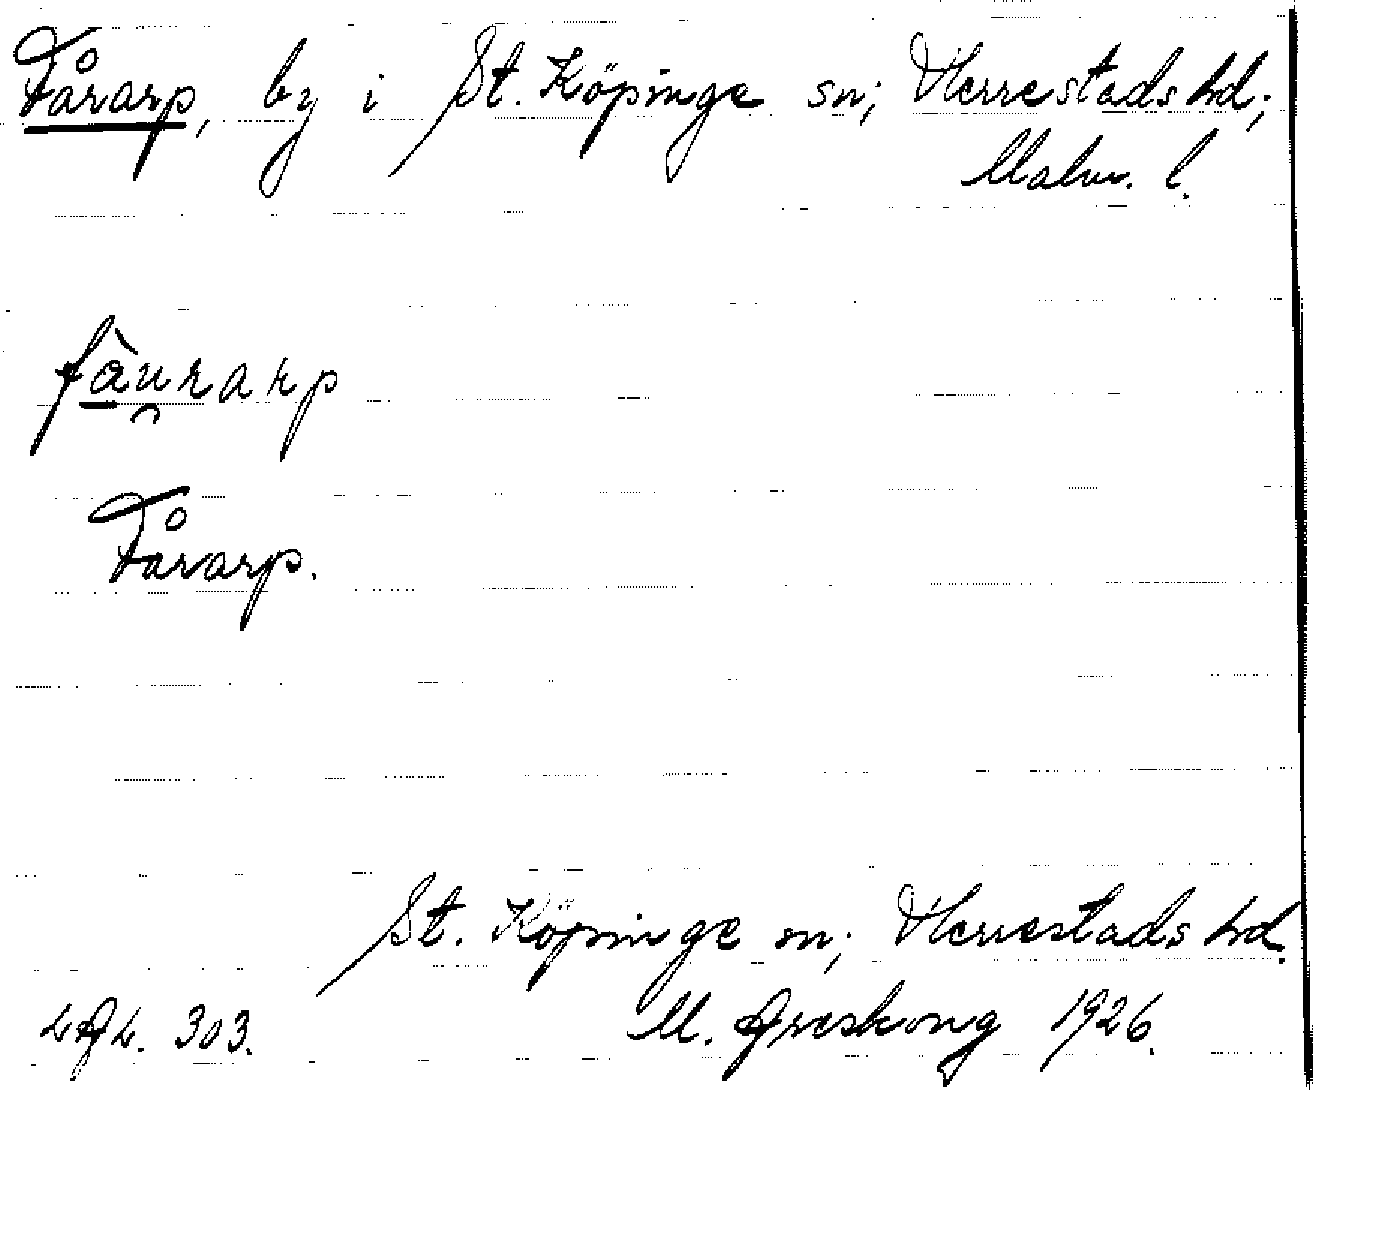 Fårarp, by i St. Köpinge sn; Herrestads hd;
Malm. l.
fàu̯rarp
Fårarp.
St. Köpinge sn; Herrestads hd.
LAL. 303. M. Areskoug 1926.